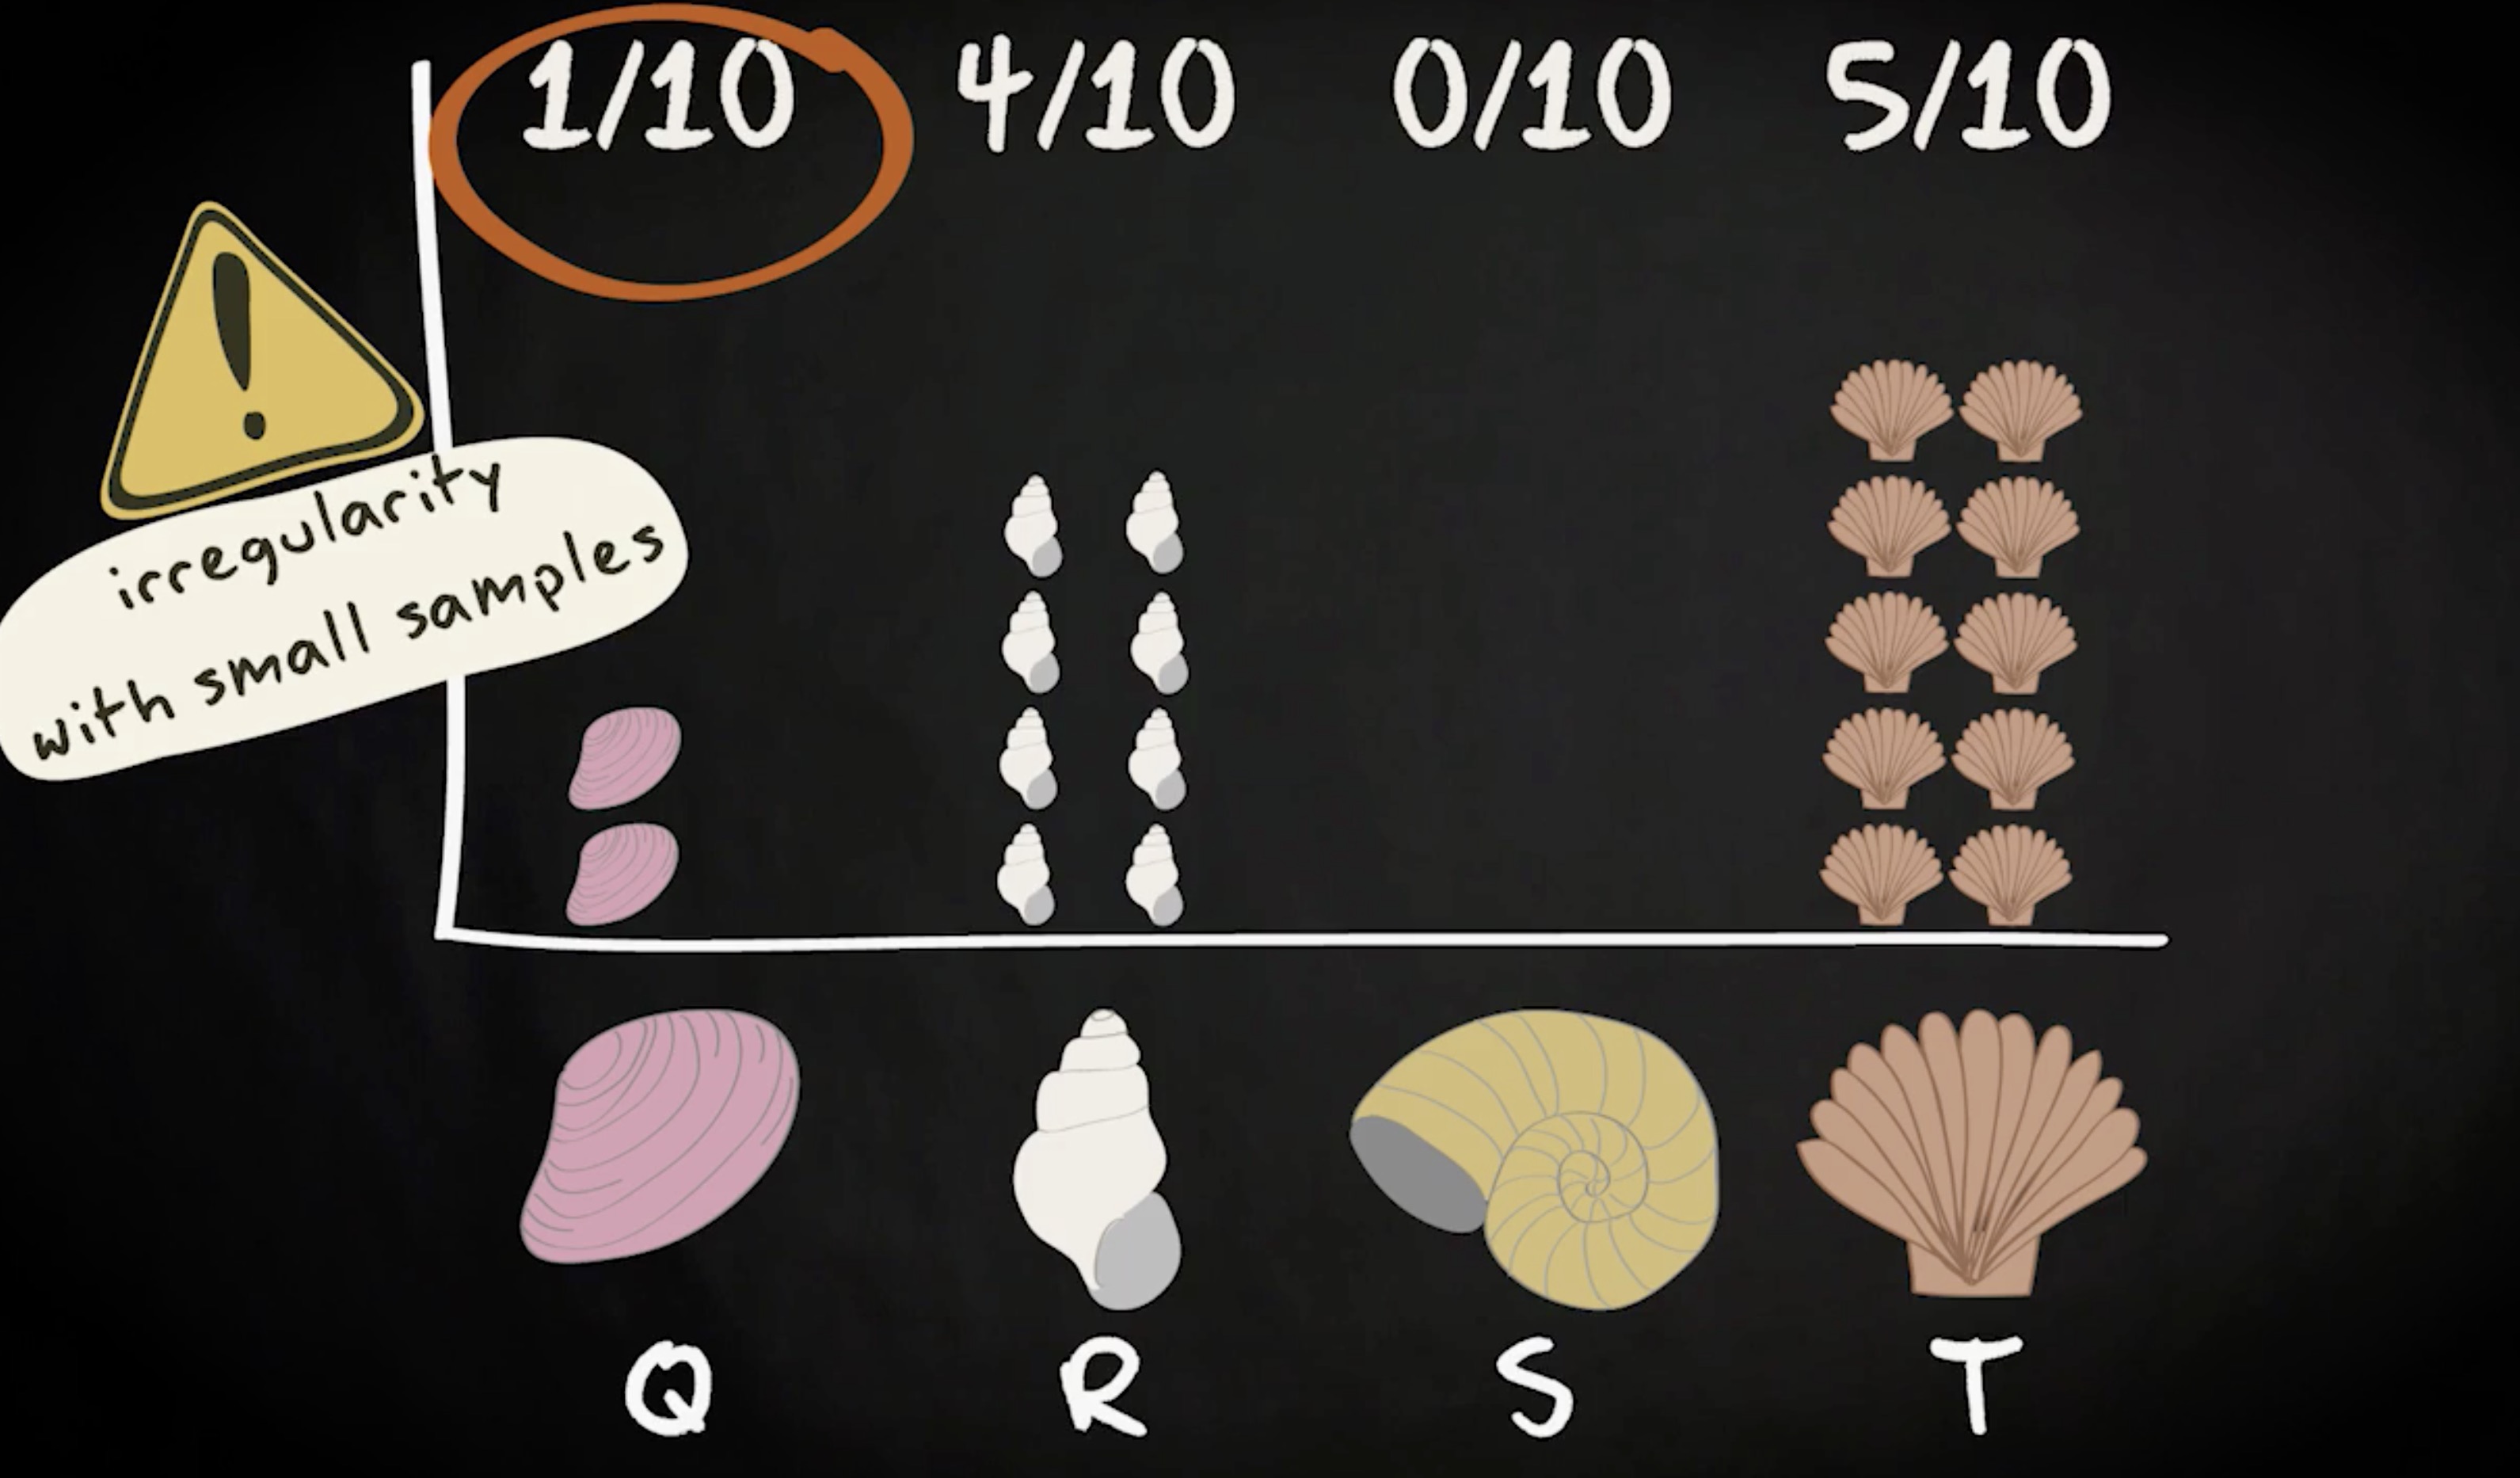 1/10 4/10 0/10 5/10
!
irregularity
with small samples
Q R S T